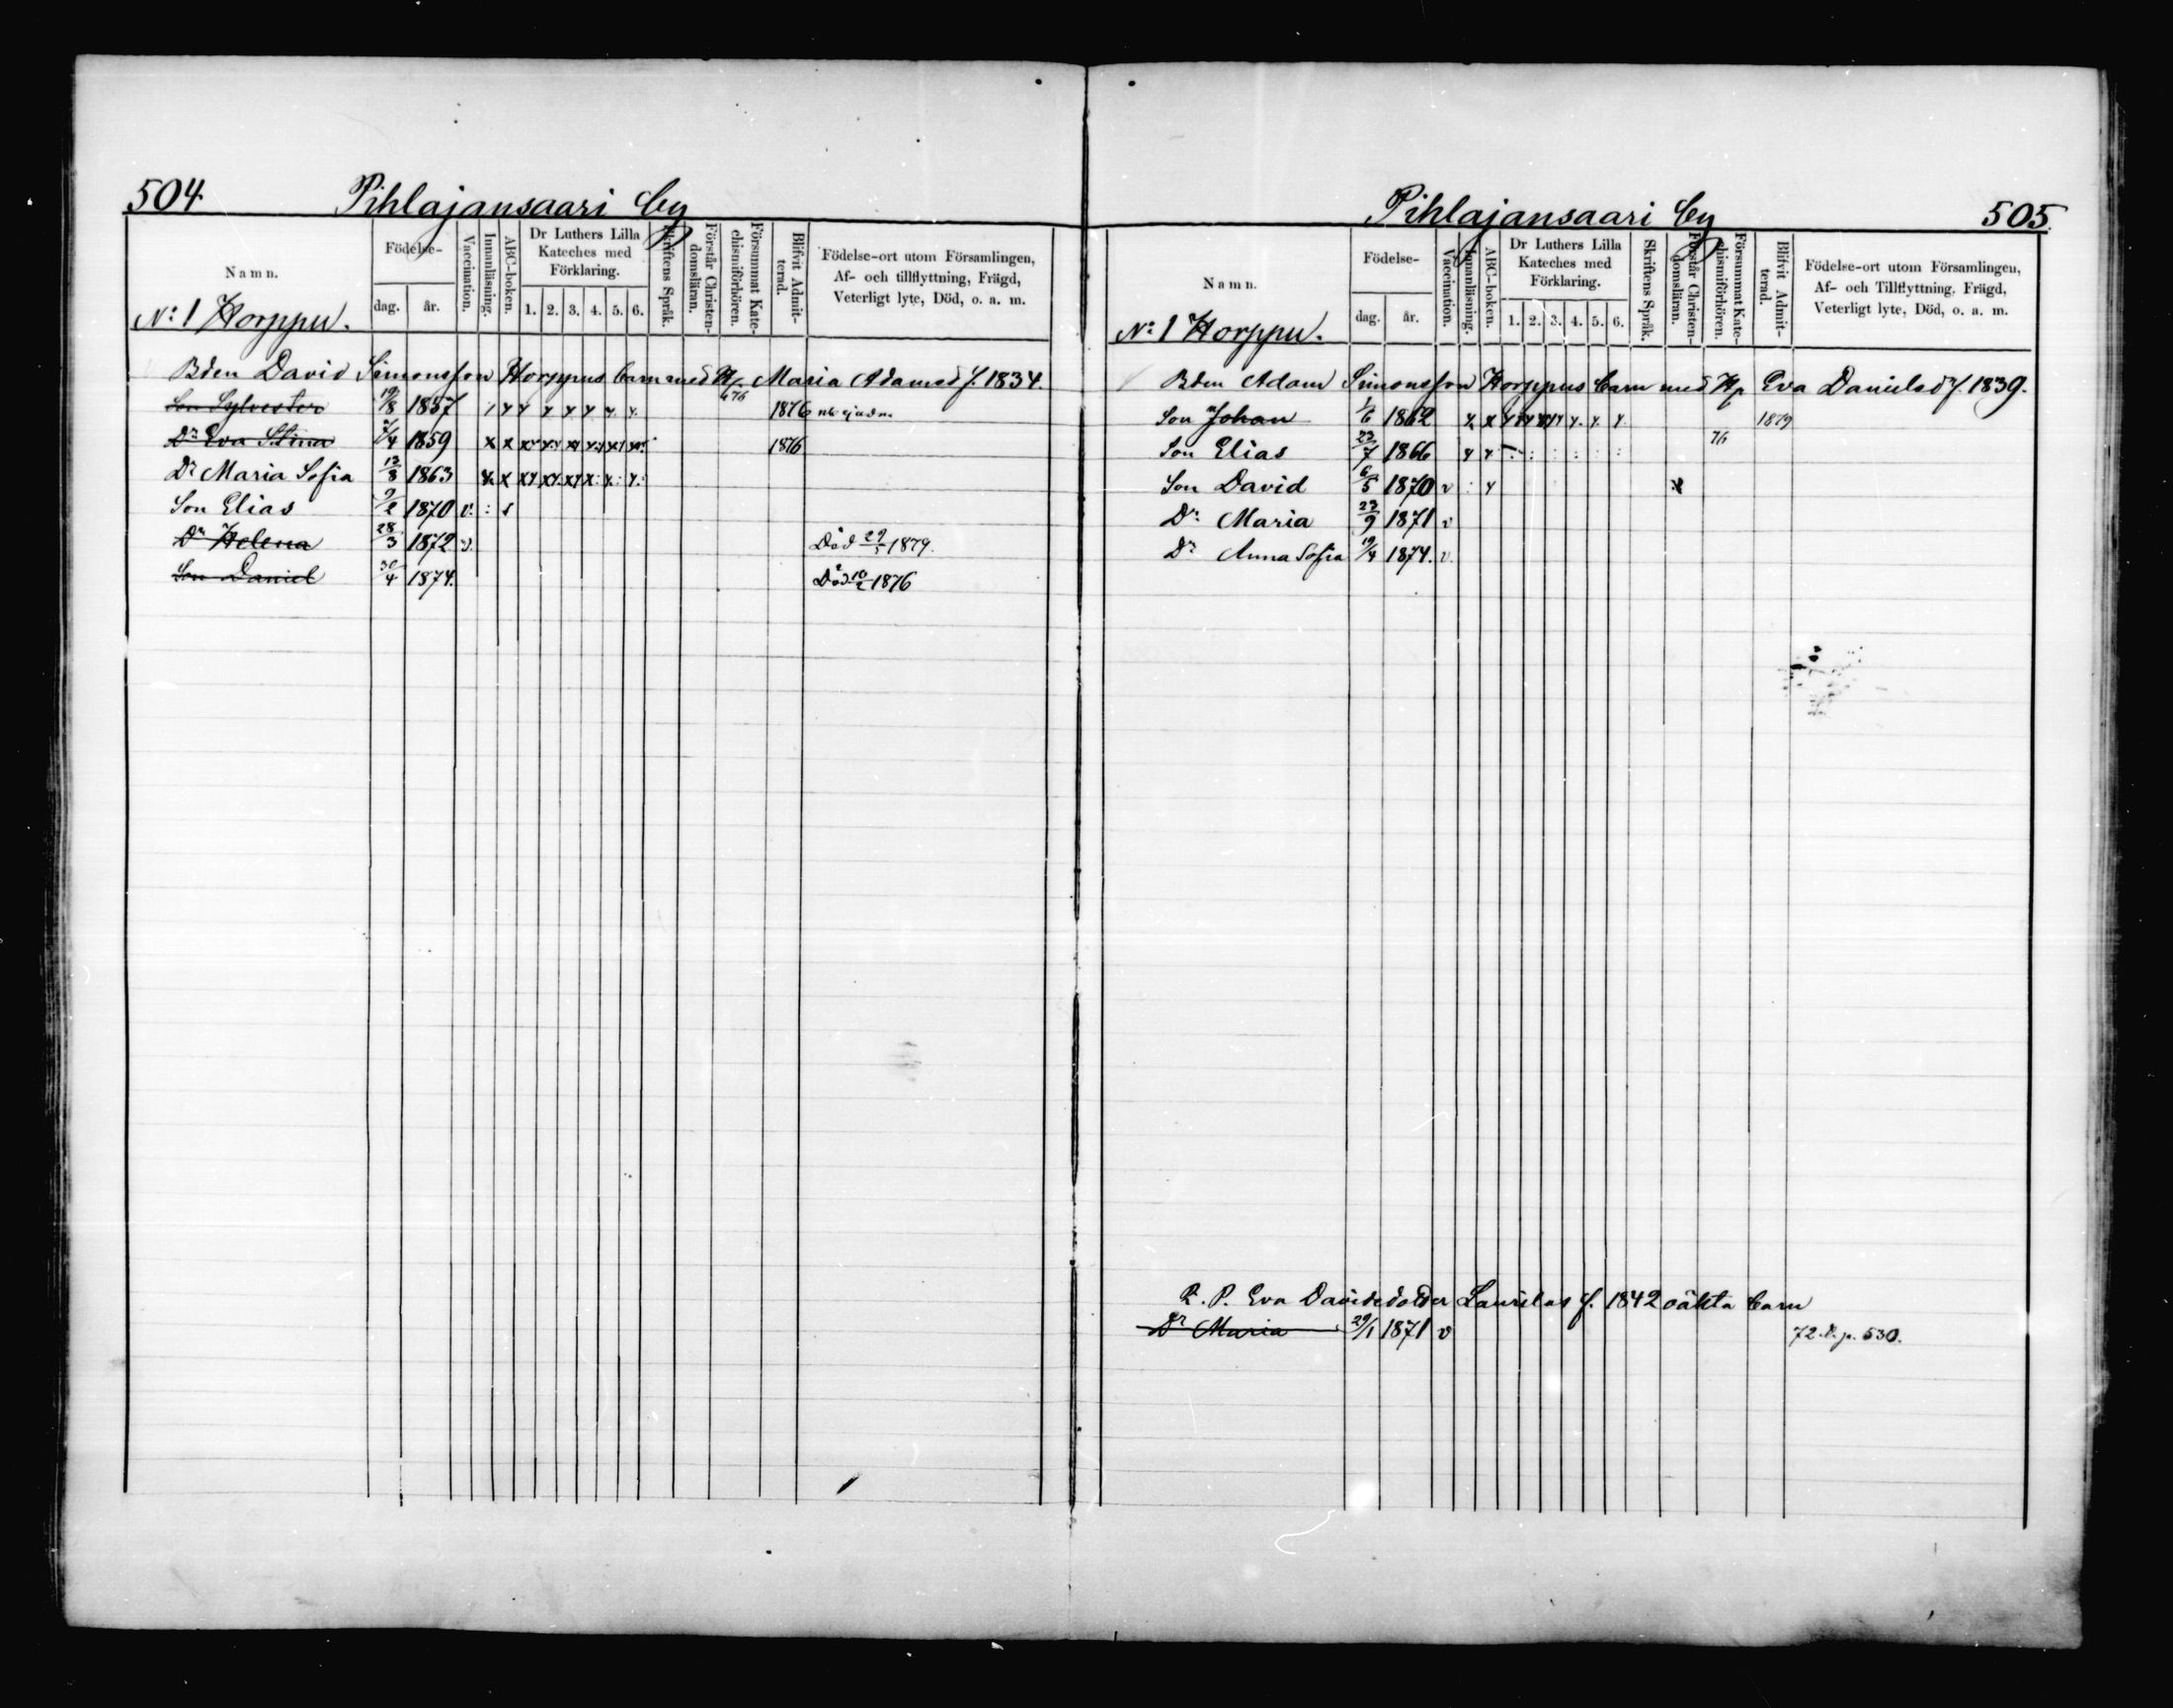 504. Pihlajansaari by
Namn. Födelse- dag. år. Vaccination. Innanläsning. ABC-boken. Dr Luthers Lilla Kateches med Förklaring. 1. 2. 3. 4. 5. 6. Skriftens Språk. Förstår Christendomsläran. Försummat Katechismiförhören. Blifvit Admitterad. Födelse-ort utom Församlingen, Af- och tillflyttning, Frägd, Veterligt lyte, Död, o. a. m.
No 1 Horppu.
Bden David Simonsson Horppus barn med H. Maria Adamsd f. 1834.
Son Sylvester 19/8 1857 1876
Dr Eva Stina 7/4 1859 1876
Dr Maria Sofia 13/8 1863
Son Elias 9/2 1870 v.
Dr Helena 28/3 1872 v. Död 29/5 1879.
Son Daniel 30/4 1874. Död 10/2 1876
Pihlajansaari by 505.
Namn. Födelse- dag. år. Vaccination. Innanläsning. ABC-boken. Dr Luthers Lilla Kateches med Förklaring. 1. 2. 3. 4. 5. 6. Skriftens Språk. Förstår Christendomsläran. Försummat Katechismiförhören. Blifvit Admitterad. Födelse-ort utom Församlingen, Af- och Tillflyttning, Frägd, Veterligt lyte, Död, o. a. m.
No 1 Horppu.
Bden Adam Simonsson Horppus barn med H. Eva Danielsd f. 1839.
Son Johan 1/6 1862 1879
Son Elias 22/7 1866 76
Son David 6/5 1870 v
Dr Maria 23/9 1871 v
Dr Anna Sofia 19/4 1874. v.
P. Eva Davidsdotter Laurilas f. 1842 oäkta barn
Dr Maria 29/1 1871 v 72. p. 530.